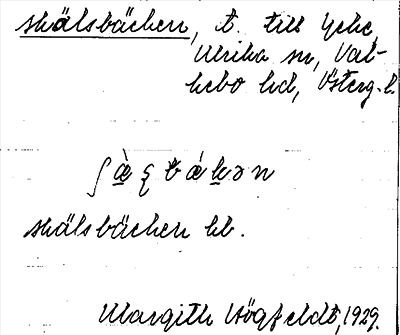 skälsbäcken, t. till Yche,
Ulrika sn, Val-
kebo hd, Österg. l.
skälsbäcken hb.
Margith Högfeldt, 1929.